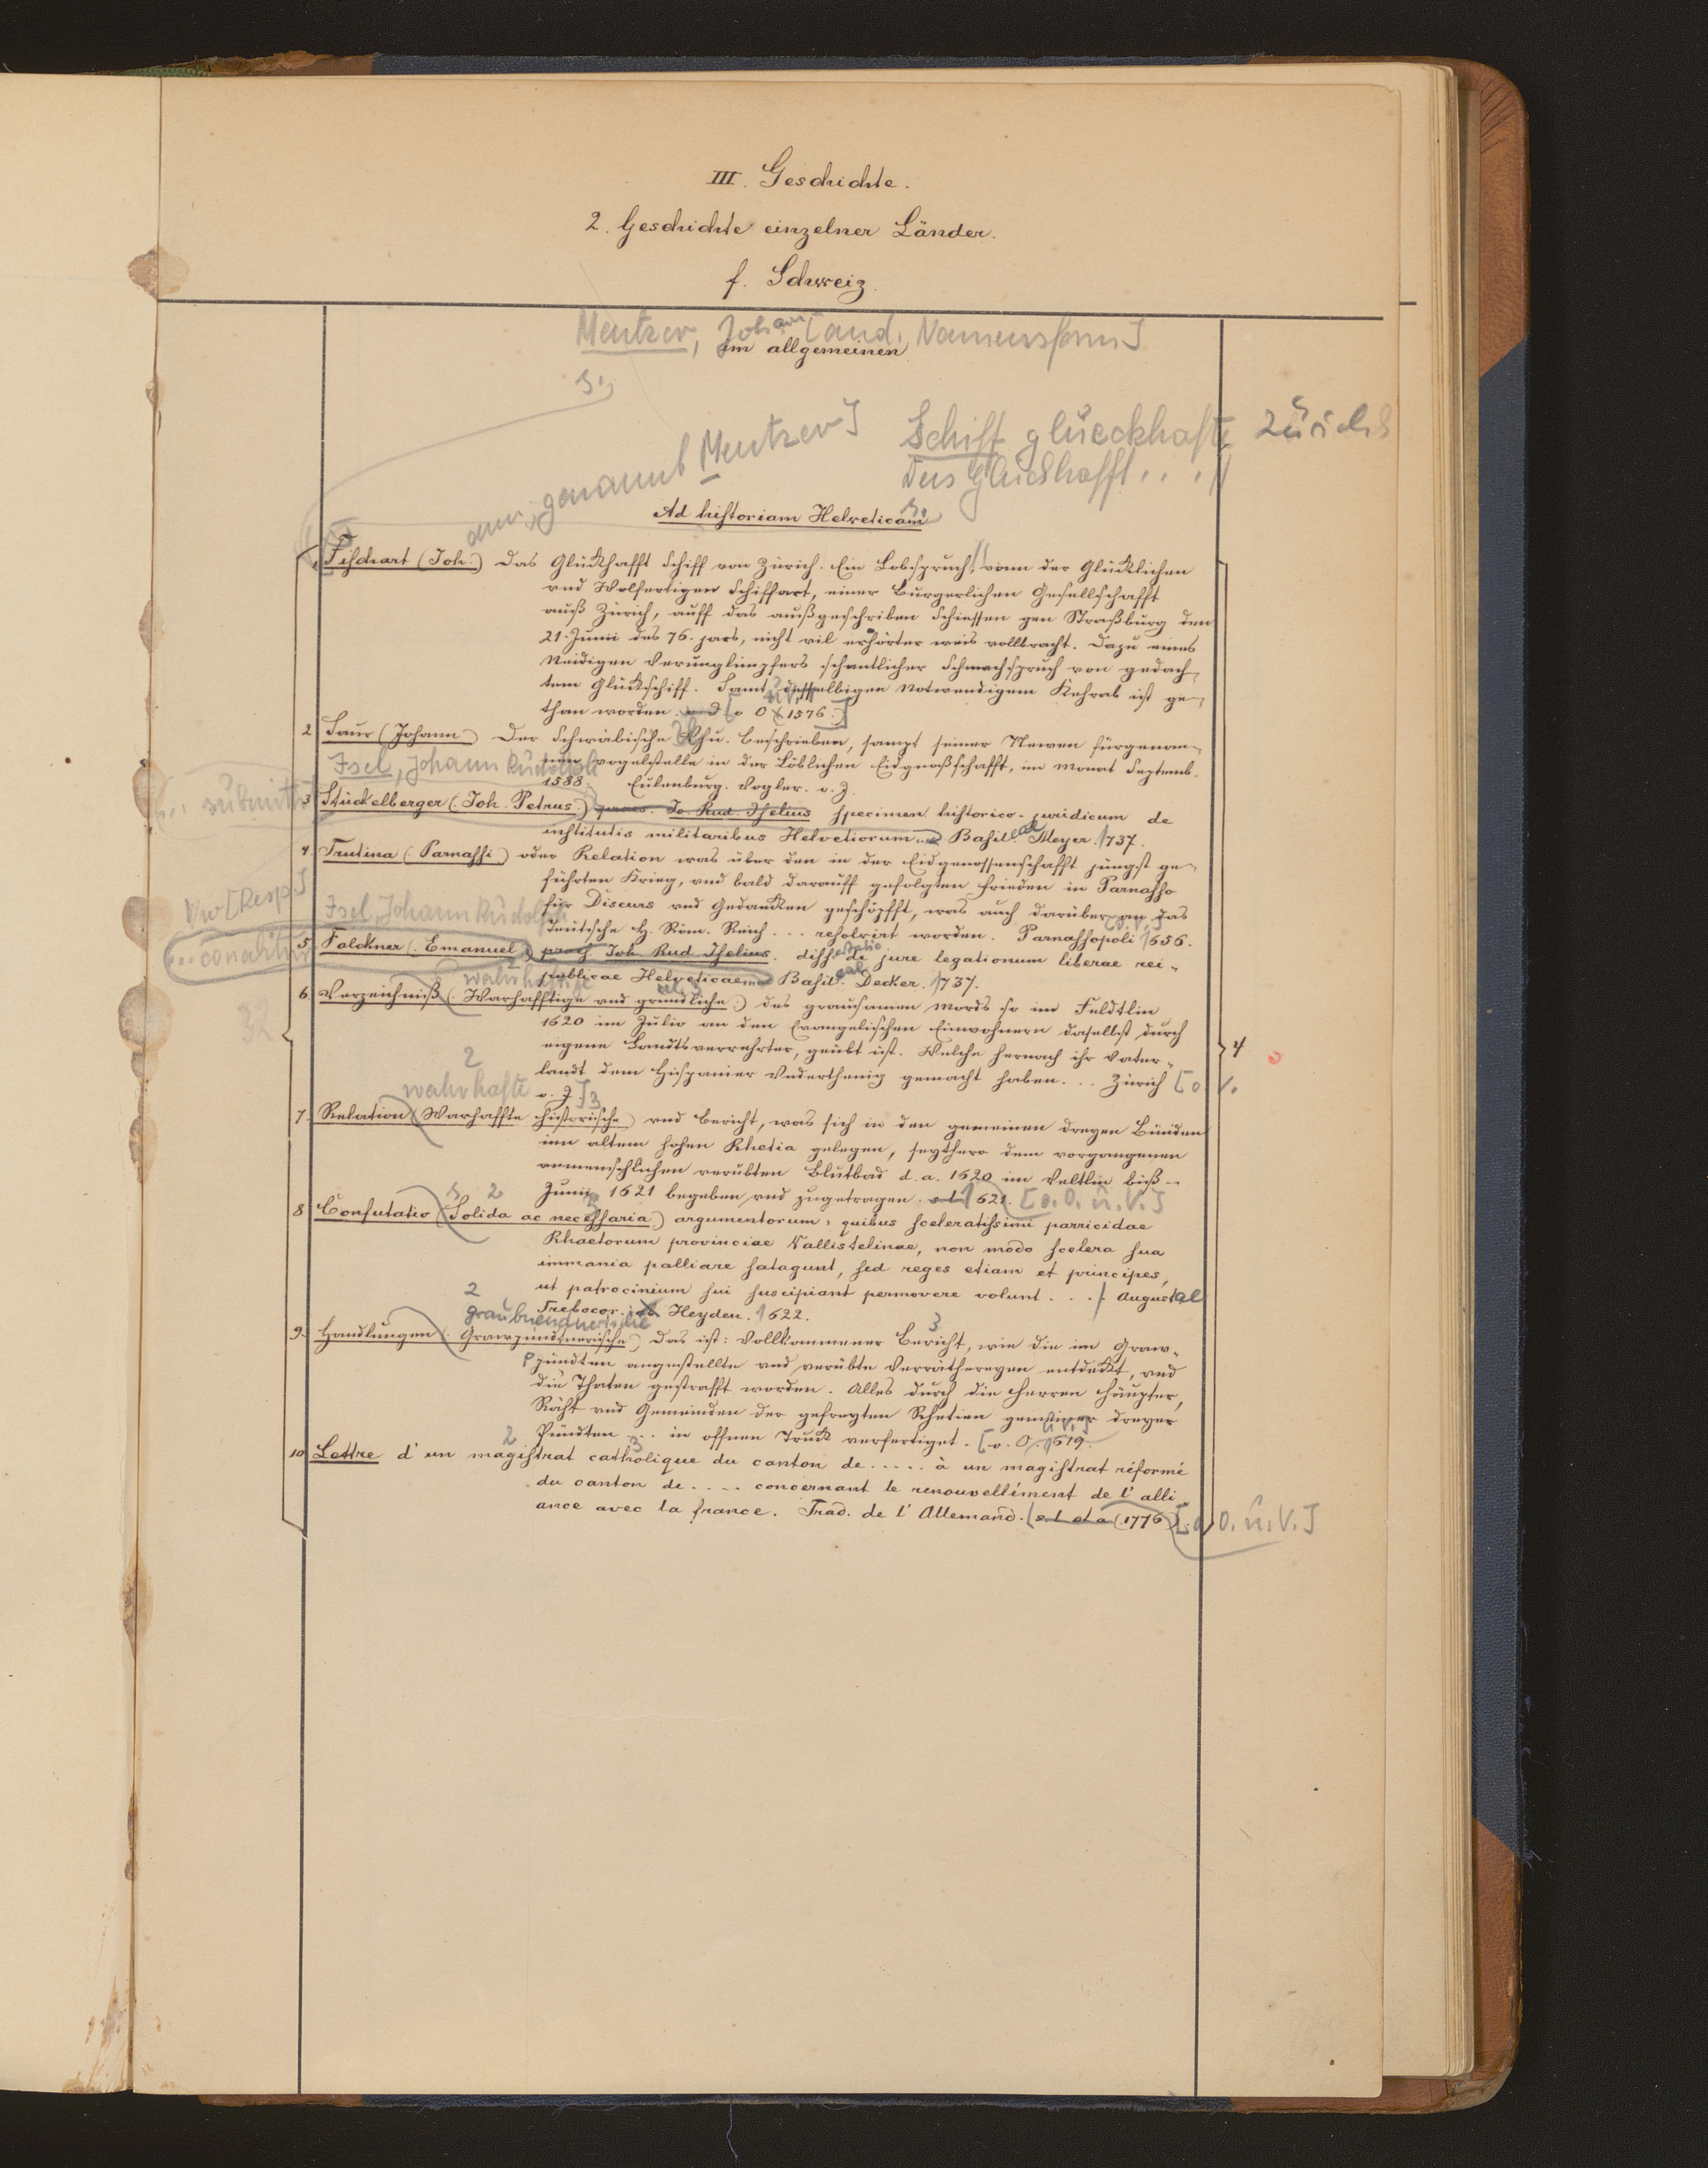 III. Geschichte.
2. Geschichte einzelner Länder.
f. Schweiz.
Mentzer, Johann [and. Namensform]
im allgemeinen
s.
genannt Mentzer] Schiff glueckhafte Zürich
Das Glückhafft . . . //
Ad historiam Helveticam
Fischart (Joh.) Das Glückhafft Schiff von Zürich. Ein Lobspruch, vonn der Glücklichen
vnd Wolfertigen Schiffart, einer Burgerlichen Gesellschafft
auß Zürich, auff das außgeschriben Schiessen gen Straßburg den
21. Junii des 76. jars, nicht vil erhörter weis vollbracht. Dazu eines
Neidigen Verunglimpfers schantlicher Schmachspruch von gedach-
tem Glückschiff. Samt desselbigen Notwendigem Kehrab ist ge-
than worden. [o O 1576.]
2 Saur (Johann) Der Schwäbische Khu. Beschrieben, sampt seiner Newen fürgenom-
vogelstelle in der Löblichen Eidgnoßschafft, im Monat Septemb.
Isel, Johann Rudolph
1588. Eulenburg. Vogler. o. J.
3 Stückelberger (Joh. Petrus.) praes. Jo. Rud. Iselius specimen historico-juridicum de
institutis militaribus Helvetiorum. Basileae Meyer. 1737.
4. Trutina (Parnassi) oder Relation was über den in der Eidgenossenschafft jüngst ge-
führten Krieg, vnd bald darauff gefolgten frieden in Parnasso
für Discurs vnd Gedancken geschöpfft, was auch darüber an das
Teutsche H. Röm. Reich . . . resolvirt worden. Parnassopoli 1656.
Vw [Resp.] Isel, Johann Rudolph
...conatitur
5 Falckner (Emanuel) praes. Joh. Rud Iselius. dissertatio de jure legationum liberae rei-
publicae Helveticae Basileae Decker. 1737.
wahrhaftige
6. Verzeichniß (Warhafftige vnd gründliche) des grausamen Mords so im Feldtlin
32
1620 im Julio an den Evangelischen Einwohnern daselbst durch
eigene Landtsverrehrter, geübt ist. Welche hernach ihr Vater-
landt dem Hispanier Underthenig gemacht haben. . . Zürich [o V.
4
2
wahrhafte
o. J.] 3
7. Relation (Warhaffte historische) vnd Bericht, was sich in den gemeinen dreyen Bünden
inn altem hohen Rhetia gelegen, seythero dem vorgangenen
vnmenschlichen verübten Blutbad d. a. 1620 im Veltlin biß
Junii 1621 begeben vnd zugetragen. s. l. 1621. [o. O. u. V.]
2
8 Confutatio (Solida ac necessaria) argumentorum, quibus sceleratissimi parricidae
Rhaetorum provinciae Vallistelinae, non modo scelera sua
immania palliare satagunt, sed reges etiam et principes,
ut patrocinium sui suscipiant permovere volunt . . . / Augustae
Trebocor. Heyden. 1622.
2
graubuendnerische
9. Handlungen (Grawpündtnerische) das ist: Vollkommener Bericht, wie die im Graw-
3
pündten angestellte vnd verübte Verräthereyen entdeckt, vnd
die Thaten gestrafft worden. Alles durch die Herren Häupter,
Räht vnd Gemeinden der gefreyten Rhetien gemeiner dreyer
Pündten . . . in offnen Truck verfertiget. [o. O. 1619.
10 Lettre d'un magistrat catholique du canton de . . . . . à un magistrat réformé
2 3
du canton de . . . . concernant le renouvellément de l'alli
ance avec la france. Trad. de l'Allemand. (s. l. et a (1776) [o. O. u. V.]